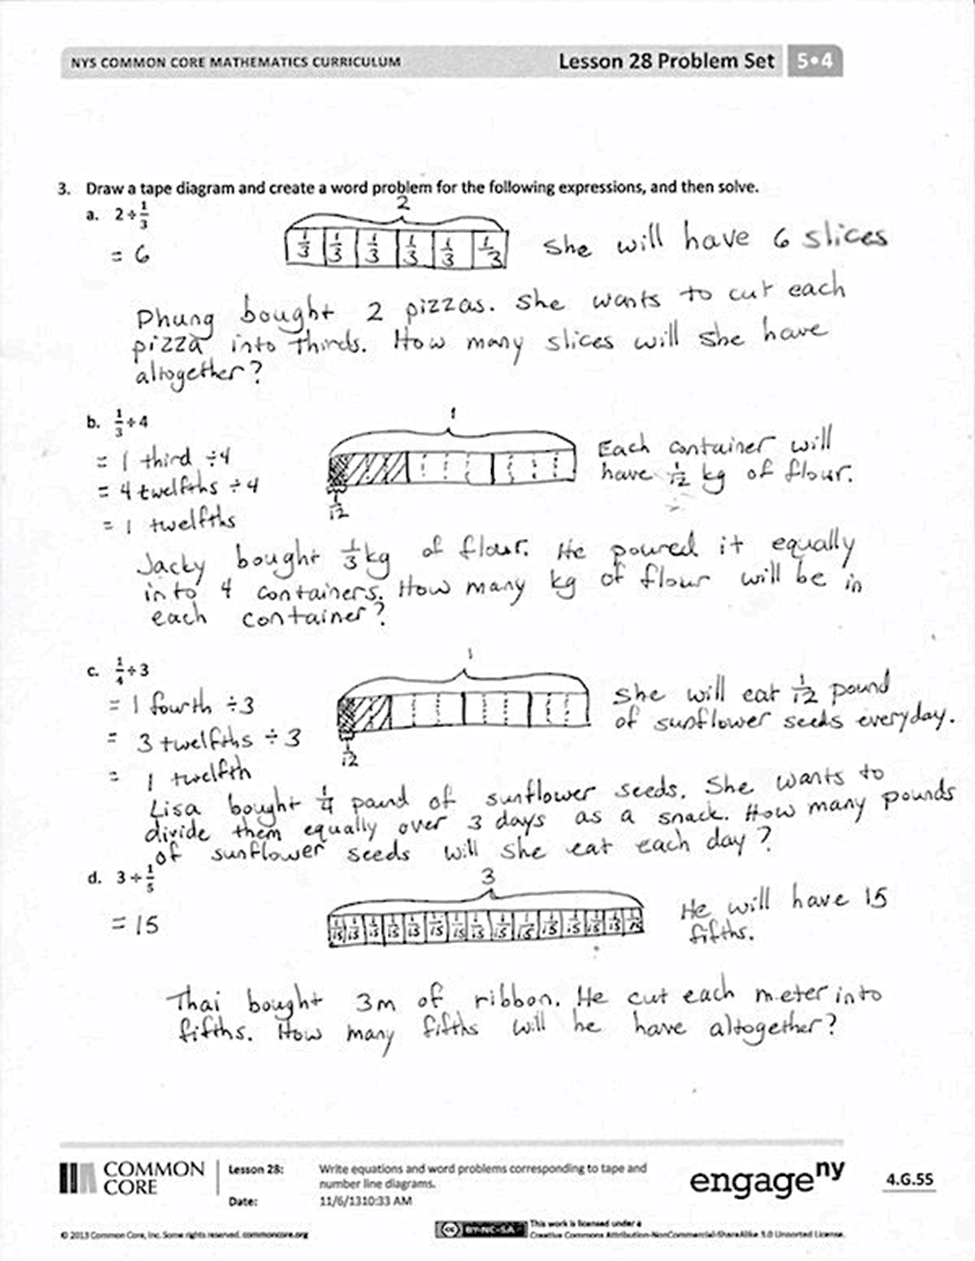 NYS COMMON CORE MATHEMATICS CURRICULUM Lesson 28 Problem Set 5•4
3. Draw a tape diagram and create a word problem for the following expressions, and then solve.
a. 2 ÷ 1/3
2
= 6
1/3 1/3 1/3 1/3 1/3 1/3
She will have 6 slices
Phung bought 2 pizzas. She wants to cut each
pizza into thirds. How many slices will she have
altogether?
b. 1/3 ÷ 4
1
= 1 third ÷ 4
= 4 twelfths ÷ 4
= 1 twelfths
1/12
Each container will
have 1/12 kg of flour.
Jacky bought 1/3 kg of flour. He poured it equally
into 4 containers. How many kg of flour will be in
each container?
c. 1/4 ÷ 3
1
= 1 fourth ÷ 3
= 3 twelfths ÷ 3
= 1 twelfth
1/12
She will eat 1/12 pound
of sunflower seeds everyday.
Lisa bought 1/4 pound of sunflower seeds. She wants to
divide them equally over 3 days as a snack. How many pounds
of sunflower seeds will she eat each day?
d. 3 ÷ 1/5
3
= 15
1/15 1/15 1/15 1/15 1/15 1/15 1/15 1/15 1/15 1/15 1/15 1/15 1/15 1/15 1/15
He will have 15
fifths.
Thai bought 3m of ribbon. He cut each meter into
fifths. How many fifths will he have altogether?
COMMON CORE
Lesson 28: Write equations and word problems corresponding to tape and
number line diagrams.
Date: 11/6/1310:33 AM
engageny
4.G.55
© 2013 Common Core, Inc. Some rights reserved. commoncore.org
cc BY-NC-SA
This work is licensed under a
Creative Commons Attribution-NonCommercial-ShareAlike 3.0 Unported License.